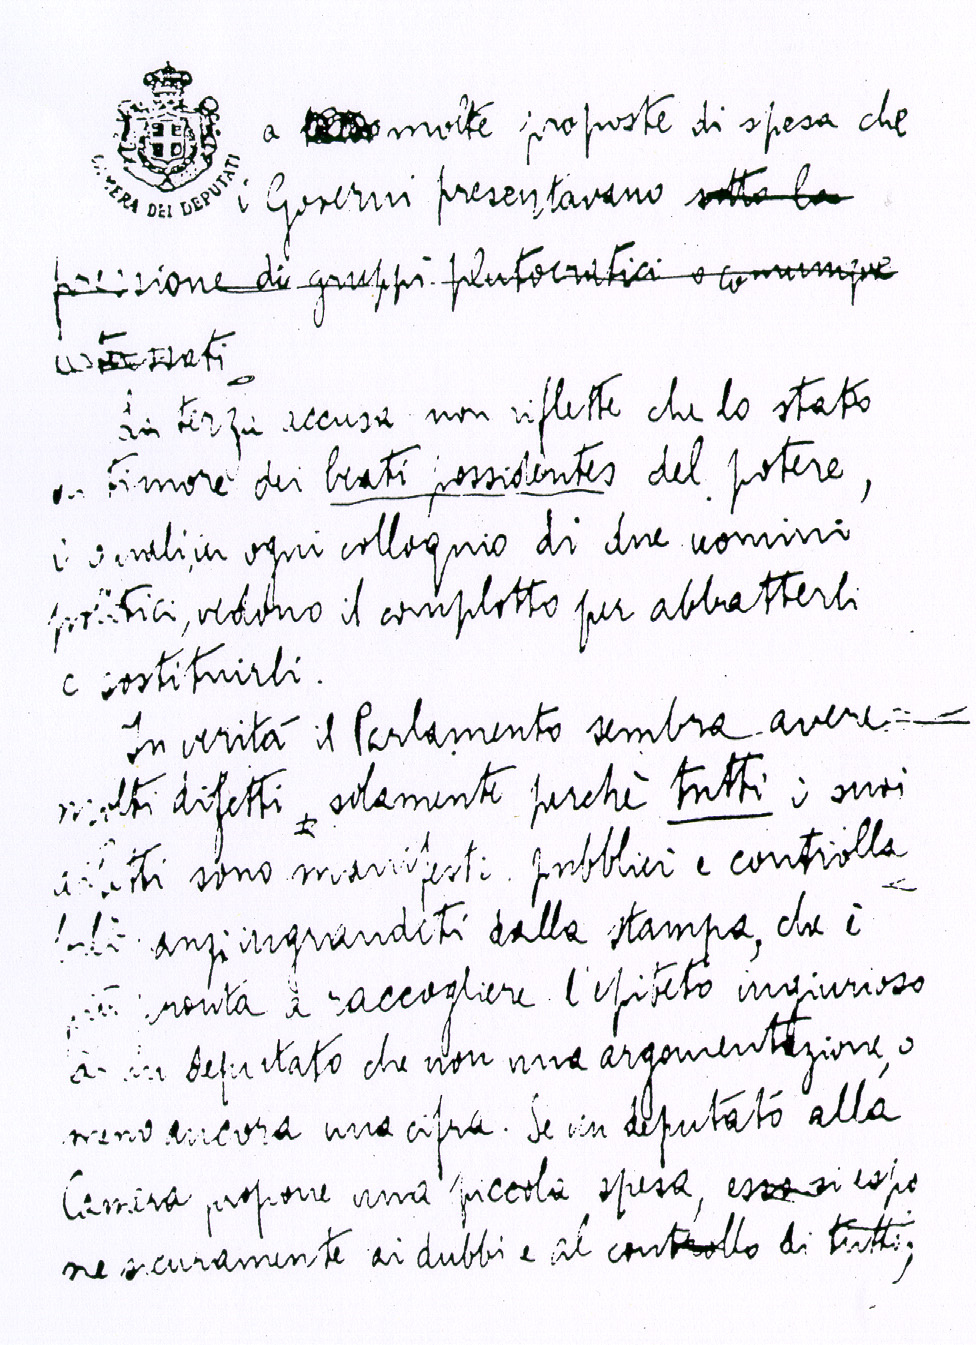 CAMERA DEI DEPUTATI
a molte proposte di spesa che
i Governi presentavano sotto la
pressione di gruppi plutocratici o comunque
interessati
La terza accusa non riflette che lo stato
di timore dei beati possidentes del potere,
i quali, in ogni colloquio di due uomini
politici, vedono il complotto per abbatterli
e sostituirli.
In verità il Parlamento sembra avere
molti difetti solamente perchè tutti i suoi
difetti sono manifesti pubblici e controlla
bili anzi ingranditi dalla stampa, che è
più pronta a raccogliere l'epiteto ingiurioso
di un deputato che non una argomentazione, o
meno ancora una cifra. Se un deputato alla
Camera propone una piccola spesa, esso si espo
ne sicuramente ai dubbi e al controllo di tutti;